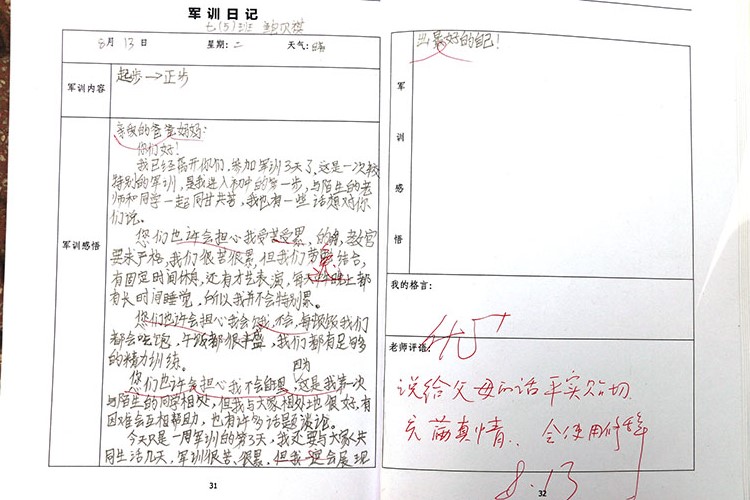 军训日记
七(5)班
8月13日 星期:二 天气:晴
军训内容
起步→正步
军训感悟
亲爱的爸爸妈妈:
你们好!
我已经离开你们,参加军训3天了,这是一次较
特别的军训,是我进入初中的第一步,与陌生的老
师和同学一起同甘共苦,我也有一些话想对你
们说。
您们也许会担心我受苦受累,的确,教官
要求严格,我们很苦很累,但我们劳逸结合,
有固定时间休息,还有才艺表演,每天晚上都
有长时间睡觉,所以我并不会特别累。
您们也许会担心我会饿,不会,每顿饭我们
都会吃饱,午饭都很丰盛,我们都有足够
的精力训练。
您们也许会担心我不会自理,因为这是我第一次
与陌生的同学相处,但我与大家相处地很好,有
困难会互相帮助,也有许多话题谈论。
今天只是一周军训的第3天,我还要与大家共
同生活几天,军训很苦、很累,但我一定会展现
31
出最好的自己!
军训感悟
我的格言:
老师评语:
优+
说给父母的话平实贴切
充满真情、会使用修辞
8.13
32